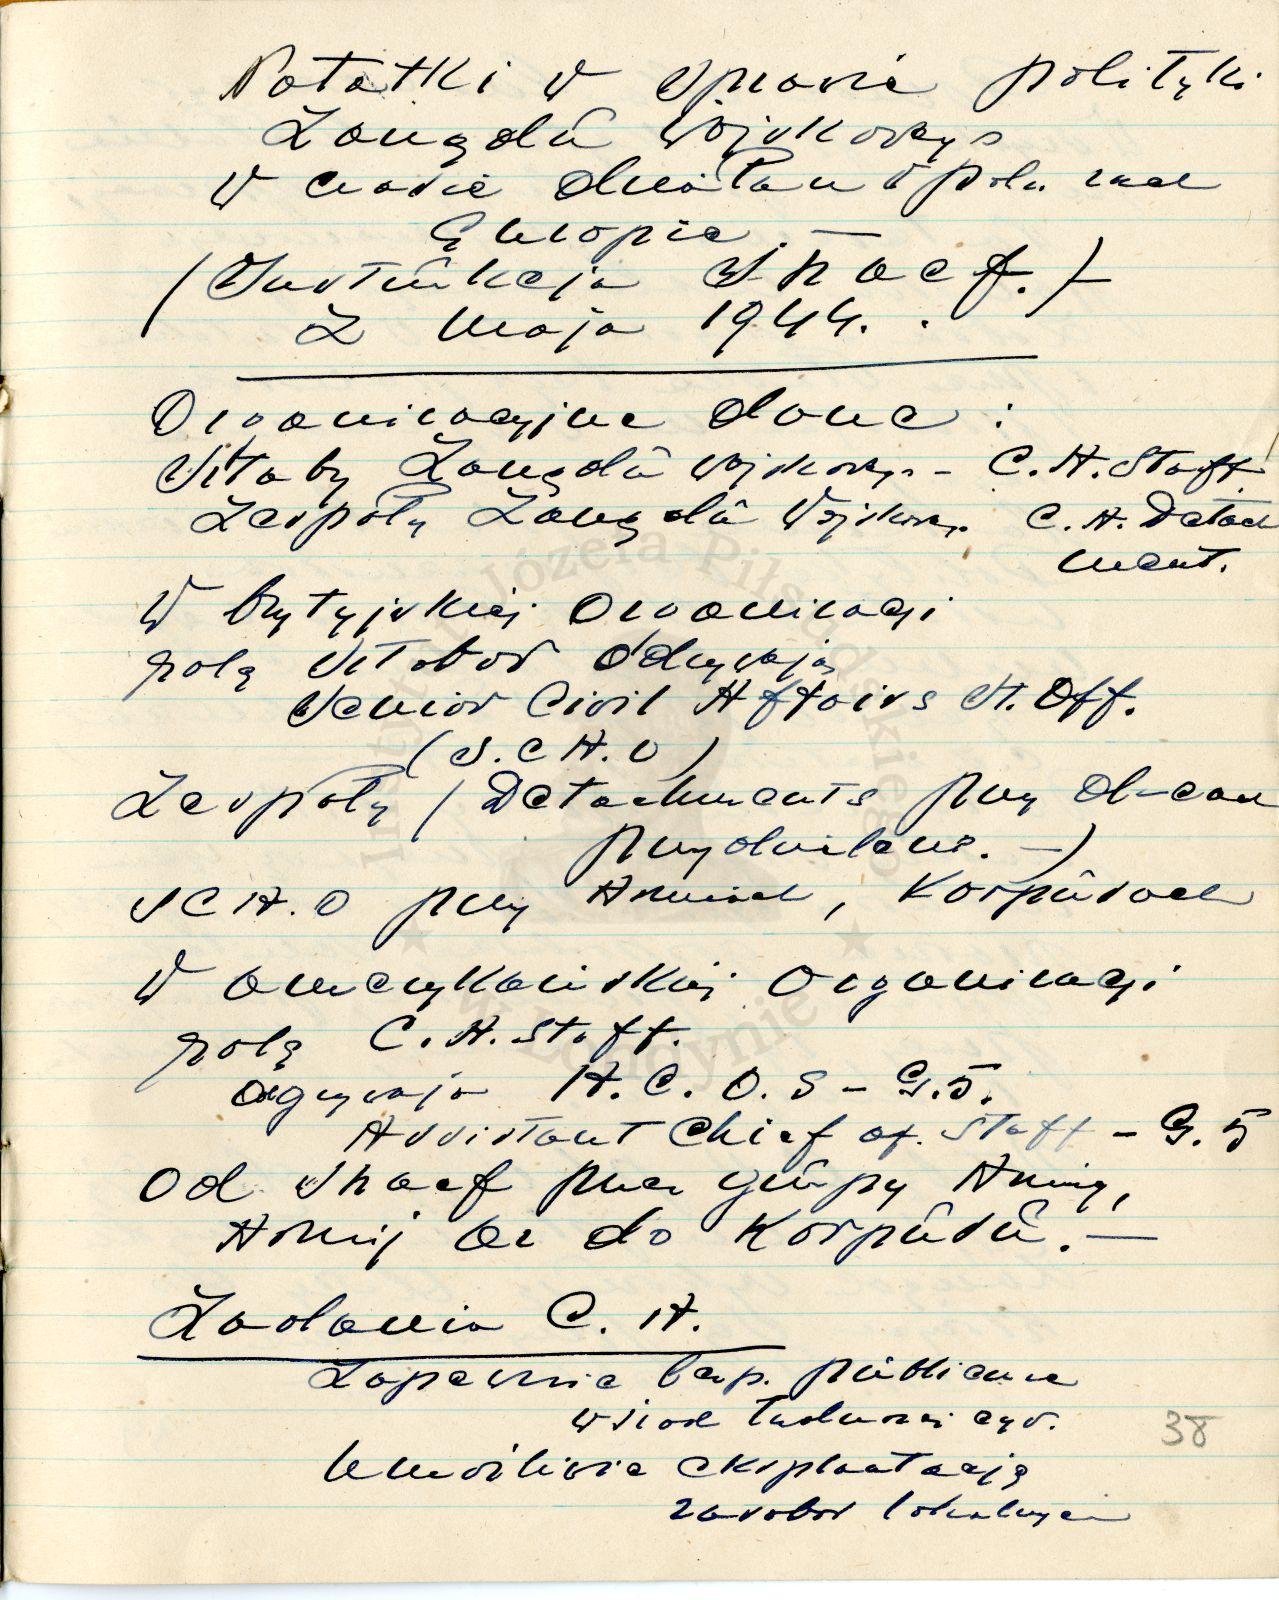 Notatki w sprawie polityki
Zarządu Wojskowego
w czasie działań w półn. zach
Europie. —
(Instrukcja Shaef.) —
z maja 1944. .
Organizacyjne dane :
Sztaby Zarządu Wojskowego – C.A. Staff
Zespoły Zarządu Wojskow. C.A. Detach
ment.
W brytyjskiej Organizacji
rolę Sztabów odgrywają
Senior Civil Affairs St. Off.
(S.C.A.O)
Zespoły (Detachments przy
przydzielane. —)
SCA.O przy Armiach, Korpusach
W amerykańskiej Organizacji
rolę C.A. Staff.
odgrywają A.C.O.S – G.5.
Assistant Chief of. Staff – G.5
Od Shaef przez grupy Armij,
Armij aż do Korpusu. —
Zadania C.A.
Zapewnić bezp. publiczne
wśród ludności cyw.
Umożliwić eksploatację
zasobów lokalnych
38
Instytut Józefa Piłsudskiego
w Londynie